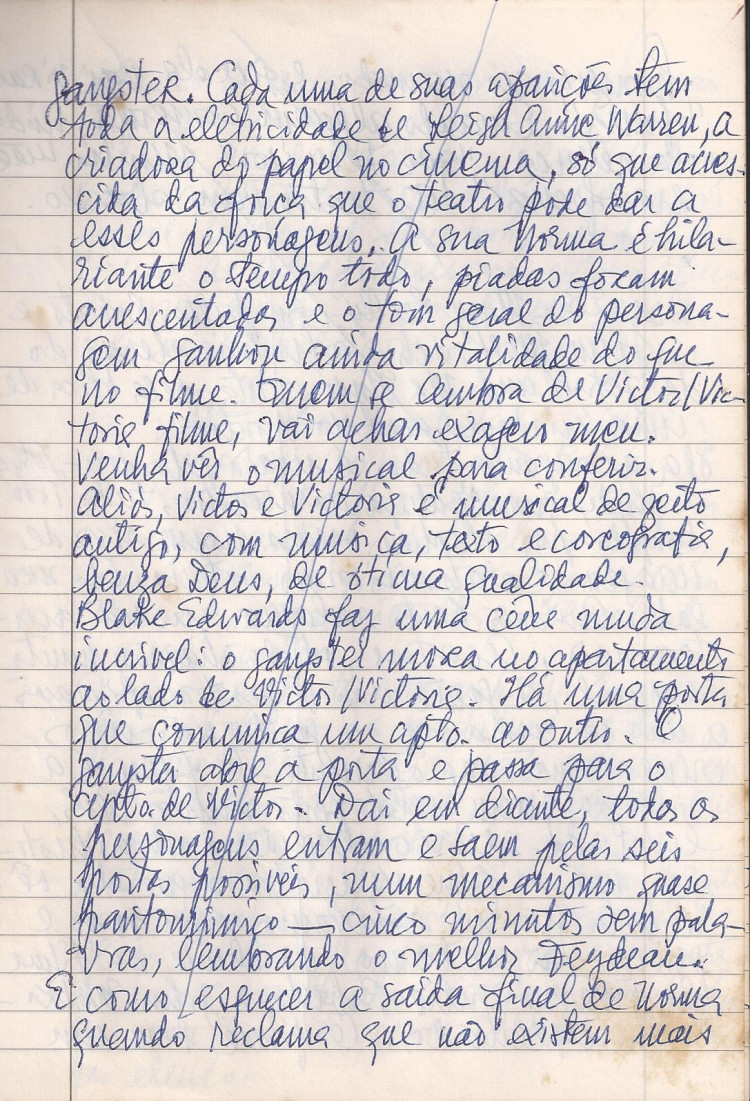 gangster. Cada uma de suas aparições tem
toda a eletricidade de Leisa Anne Warren, a
criadora do papel no cinema, só que acres-
cida da força que o teatro pode dar a
esses personagens. A sua Norma é hila-
riante o tempo todo, piadas foram
acrescentadas e o tom geral do persona-
gem ganhou ainda vitalidade do que
no filme. Quem se lembra de Victor/Vic-
toria filme, vai achar exagero meu.
Venha vêr o musical para conferir.
Aliás, Victor e Victoria é musical de jeito
antigo, com música, texto e coreografia,
benza Deus, de ótima qualidade.
Blake Edwards faz uma cena muda
incrível: o gangster mora no apartamento
ao lado de Victor/Victoria. Há uma porta
que comunica um apto. ao outro. O
gangster abre a porta e passa para o
apto. de Victor. Daí em diante, todos os
personagens entram e saem pelas seis
portas possíveis, num mecanismo quase
pantomímico — cinco minutos sem pala-
vras, lembrando o melhor Feydeau.
E como esquecer a saída final de Norma
quando reclama que não existem mais